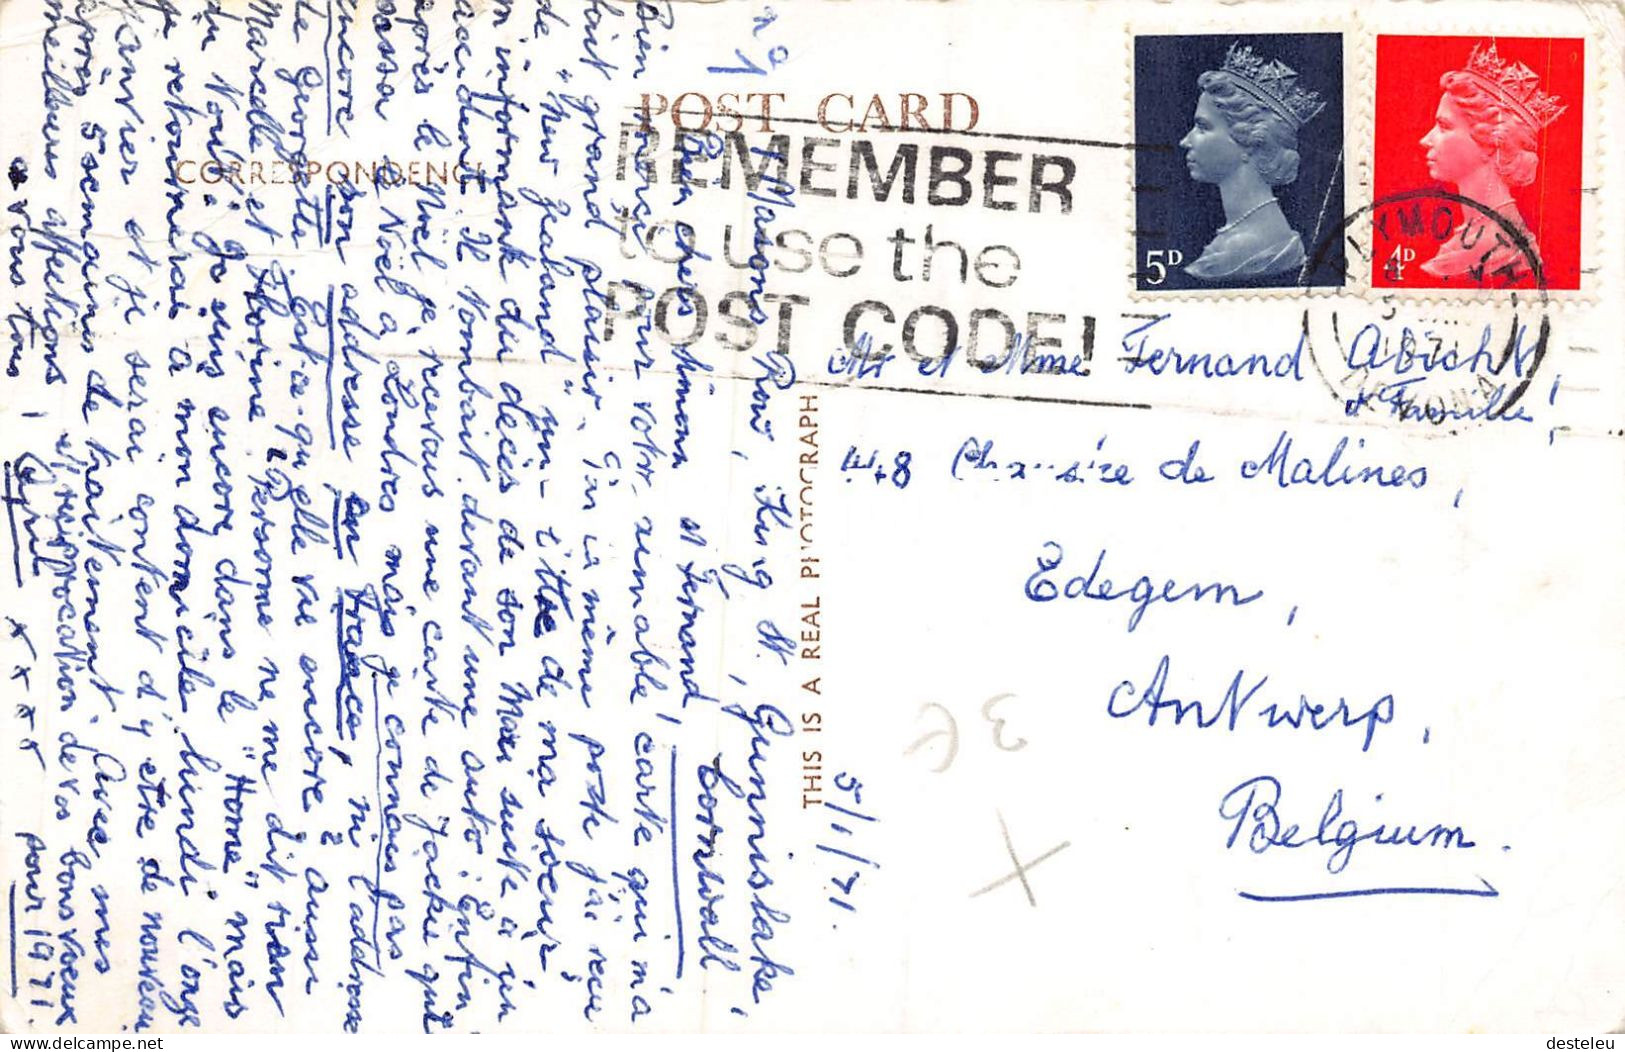 n° 1
POST CARD
CORRESPONDENCE
REMEMBER
to use the
POST CODE!
5D
4D
PLYMOUTH
DEVON
THIS IS A REAL PHOTOGRAPH
5/1/71.
7 Masons Row, King St. Gunnislake,
Cornwall
Bien chers Simona et Fernand,
Bien merci pour votre aimable carte qui m'a
fait grand plaisir. Par la même poste j'ai reçu
de "New Zealand" une lettre de ma soeur
m'informant du décès de son Mari suite à un
accident. Il tombait devant une auto. Enfin
après le Noël je recevais une carte de Jackie qui
passa le Noël à Londres mais je connais pas
encore son addresse en France, ni l'addresse
de Georgette. Est-ce-qu'elle vie encore? aussi
Marcelle et Florine? Personne ne me dit rien
du Nord. Je suis encore dans le "Home" mais
je retournerai à mon domicile lundi l'onze
Janvier et je serai content d'y être de nouveau
après 5 semaines de traitement. Avec mes
meilleures affections et réciprocation de vos bons voeux
à vous tous, Cyril x x x x pour 1971.
Mr et Mme Fernand Abicht,
et Famille!
448 Chaussée de Malines,
Edegem,
Antwerp,
Belgium.
3€
desteleu